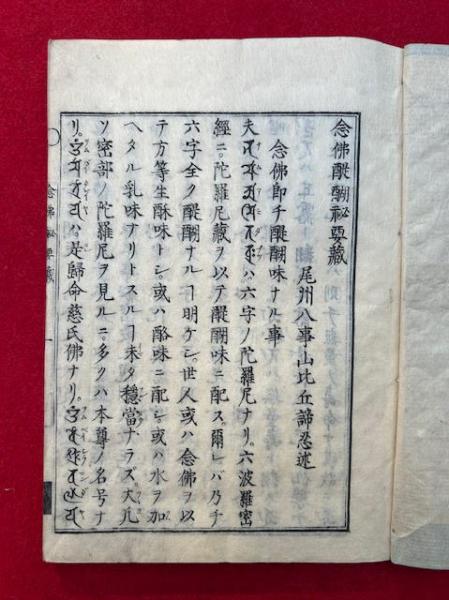 念佛醍醐祕要藏
尾州八事山比丘諦忍述
念佛即チ醍醐味ナル事
夫ハ六字ノ陀羅尼ナリ。六波羅密
經ニ。陀羅尼藏ヲ以テ醍醐味ニ配ス。爾レハ乃チ
六字全ク醍醐ナルヿ明ケシ。世人或ハ念佛ヲ以
テ方等生酥味トシ。或ハ酪味ニ配シ。或ハ水ヲ加
ヘタル乳味ナリトスルヿ未タ穩當ナラズ。大凡
ソ密部ノ陀羅尼ヲ見ルニ。多クハ本尊ノ名号ナ
リ。ハ。是歸命慈氏佛ナリ。
念佛祕要藏
一